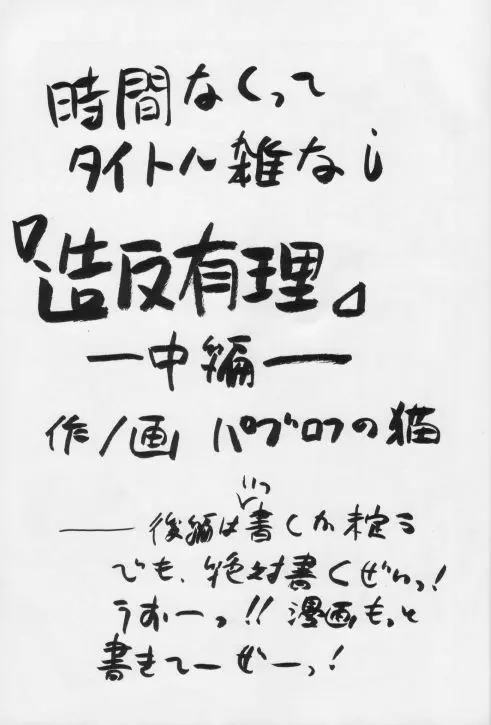 時間なくって
タイトル雑なし
『造反有理』
―中編―
作/画 パブロフの猫
――後編はいつ書くか未定っ
でも、絶対書くぜいっ!
うおーっ!! 漫画もっと
書きてーぜーっ!